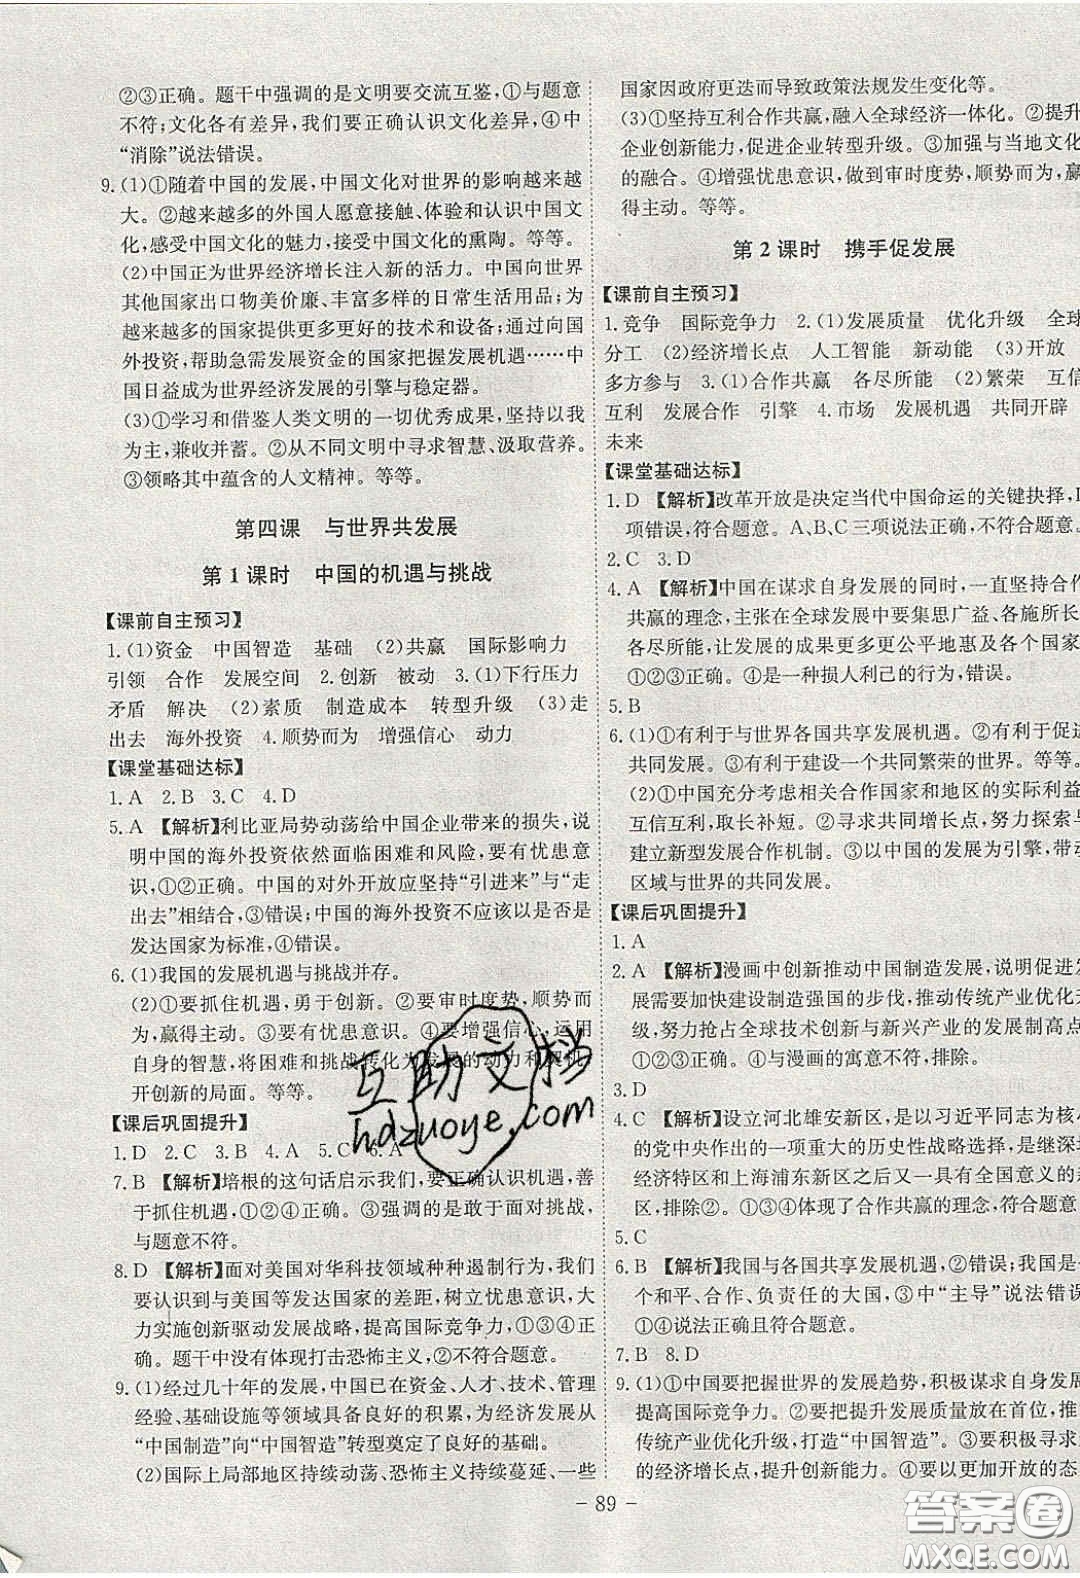 ②③正确。题干中强调的是文明要交流互鉴,①与题意
不符;文化各有差异,我们要正确认识文化差异,④中
“消除”说法错误。
9.(1)①随着中国的发展,中国文化对世界的影响越来越
大。②越来越多的外国人愿意接触、体验和认识中国文
化,感受中国文化的魅力,接受中国文化的熏陶。等等。
(2)中国正为世界经济增长注入新的活力。中国向世界
其他国家出口物美价廉、丰富多样的日常生活用品;为
越来越多的国家提供更多更好的技术和设备;通过向国
外投资,帮助急需发展资金的国家把握发展机遇……中
国日益成为世界经济发展的引擎与稳定器。
(3)①学习和借鉴人类文明的一切优秀成果,坚持以我
为主,兼收并蓄。②从不同文明中寻求智慧、汲取营养。
③领略其中蕴含的人文精神。等等。
第四课 与世界共发展
第1课时 中国的机遇与挑战
【课前自主预习】
1.(1)资金 中国智造 基础 (2)共赢 国际影响力
引领 合作 发展空间 2.创新 被动 3.(1)下行压力
矛盾 解决 (2)素质 制造成本 转型升级 (3)走
出去 海外投资 4.顺势而为 增强信心 动力
【课堂基础达标】
1.A 2.B 3.C 4.D
5.A 【解析】利比亚局势动荡给中国企业带来的损失,说
明中国的海外投资依然面临困难和风险,要有忧患意
识,①②正确。中国的对外开放应坚持“引进来”与“走
出去”相结合,③错误;中国的海外投资不应该以是否是
发达国家为标准,④错误。
6.(1)我国的发展机遇与挑战并存。
(2)①要抓住机遇,勇于创新。②要审时度势,顺势而
为,赢得主动。③要有忧患意识。④要增强信心,运用
自身的智慧,将困难和挑战转化为发展的动力和契机,
开创新的局面。等等。
【课后巩固提升】
1.D 2.C 3.B 4.A 5.C 6.A
7.B 【解析】培根的这句话启示我们,要正确认识机遇,善
于抓住机遇,①②④正确。③强调的是敢于面对挑战,
与题意不符。
8.D 【解析】面对美国对华科技领域种种遏制行为,我们
要认识到与美国等发达国家的差距,树立忧患意识,大
力实施创新驱动发展战略,提高国际竞争力,①③④正
确。题干中没有体现打击恐怖主义,②不符合题意。
9.(1)经过几十年的发展,中国已在资金、人才、技术、管理
经验、基础设施等领域具备良好的积累,为经济发展由
“中国制造”向“中国智造”转型奠定了良好的基础。
(2)国际上局部地区持续动荡、恐怖主义持续蔓延、一些
国家因政府更迭而导致政策法规发生变化等。
(3)①坚持互利合作共赢,融入全球经济一体化。②提升
企业创新能力,促进企业转型升级。③加强与当地文化
的融合。④增强忧患意识,做到审时度势,顺势而为,赢
得主动。等等。
第2课时 携手促发展
【课前自主预习】
1.竞争 国际竞争力 2.(1)发展质量 优化升级 全球
分工 (2)经济增长点 人工智能 新动能 (3)开放
多方参与 3.(1)合作共赢 各尽所能 (2)繁荣 互信
互利 发展合作 引擎 4.市场 发展机遇 共同开辟
未来
【课堂基础达标】
1.D 【解析】改革开放是决定当代中国命运的关键抉择,D
项错误,符合题意。A、B、C三项说法正确,不符合题意。
2.C 3.D
4.A 【解析】中国在谋求自身发展的同时,一直坚持合作
共赢的理念,主张在全球发展中要集思广益、各施所长、
各尽所能,让发展的成果更多更公平地惠及各个国家,
①②③正确。④是一种损人利己的行为,错误。
5.B
6.(1)①有利于与世界各国共享发展机遇。②有利于促进
共同发展。③有利于建设一个共同繁荣的世界。等等。
(2)①中国充分考虑相关合作国家和地区的实际利益,
互信互利,取长补短。②寻求共同增长点,努力探索与
建立新型发展合作机制。③以中国的发展为引擎,带动
区域与世界的共同发展。
【课后巩固提升】
1.A
2.A 【解析】漫画中创新推动中国制造发展,说明促进发
展需要加快建设制造强国的步伐,推动传统产业优化升
级,努力抢占全球技术创新与新兴产业的发展制高点,
①②③正确。④与漫画的寓意不符,排除。
3.D
4.C 【解析】设立河北雄安新区,是以习近平同志为核心
的党中央作出的一项重大的历史性战略选择,是继深圳
经济特区和上海浦东新区之后又一具有全国意义的新
区,排除②。①③④体现了合作共赢的理念,符合题意。
5.C
6.B 【解析】我国与各国共享发展机遇,②错误;我国是一
个和平、合作、负责任的大国,③中“主导”说法错误;
①④说法正确且符合题意。
7.B 8.D
9.(1)①中国要把握世界的发展趋势,积极谋求自身发展,
提高国际竞争力。②要把提升发展质量放在首位,推动
传统产业优化升级,打造“中国智造”。③要积极寻求新
的经济增长点,提升创新能力。④要以更加开放的态
－89－
互助文档
hdzuoye.com
答案圈
MXQE.COM